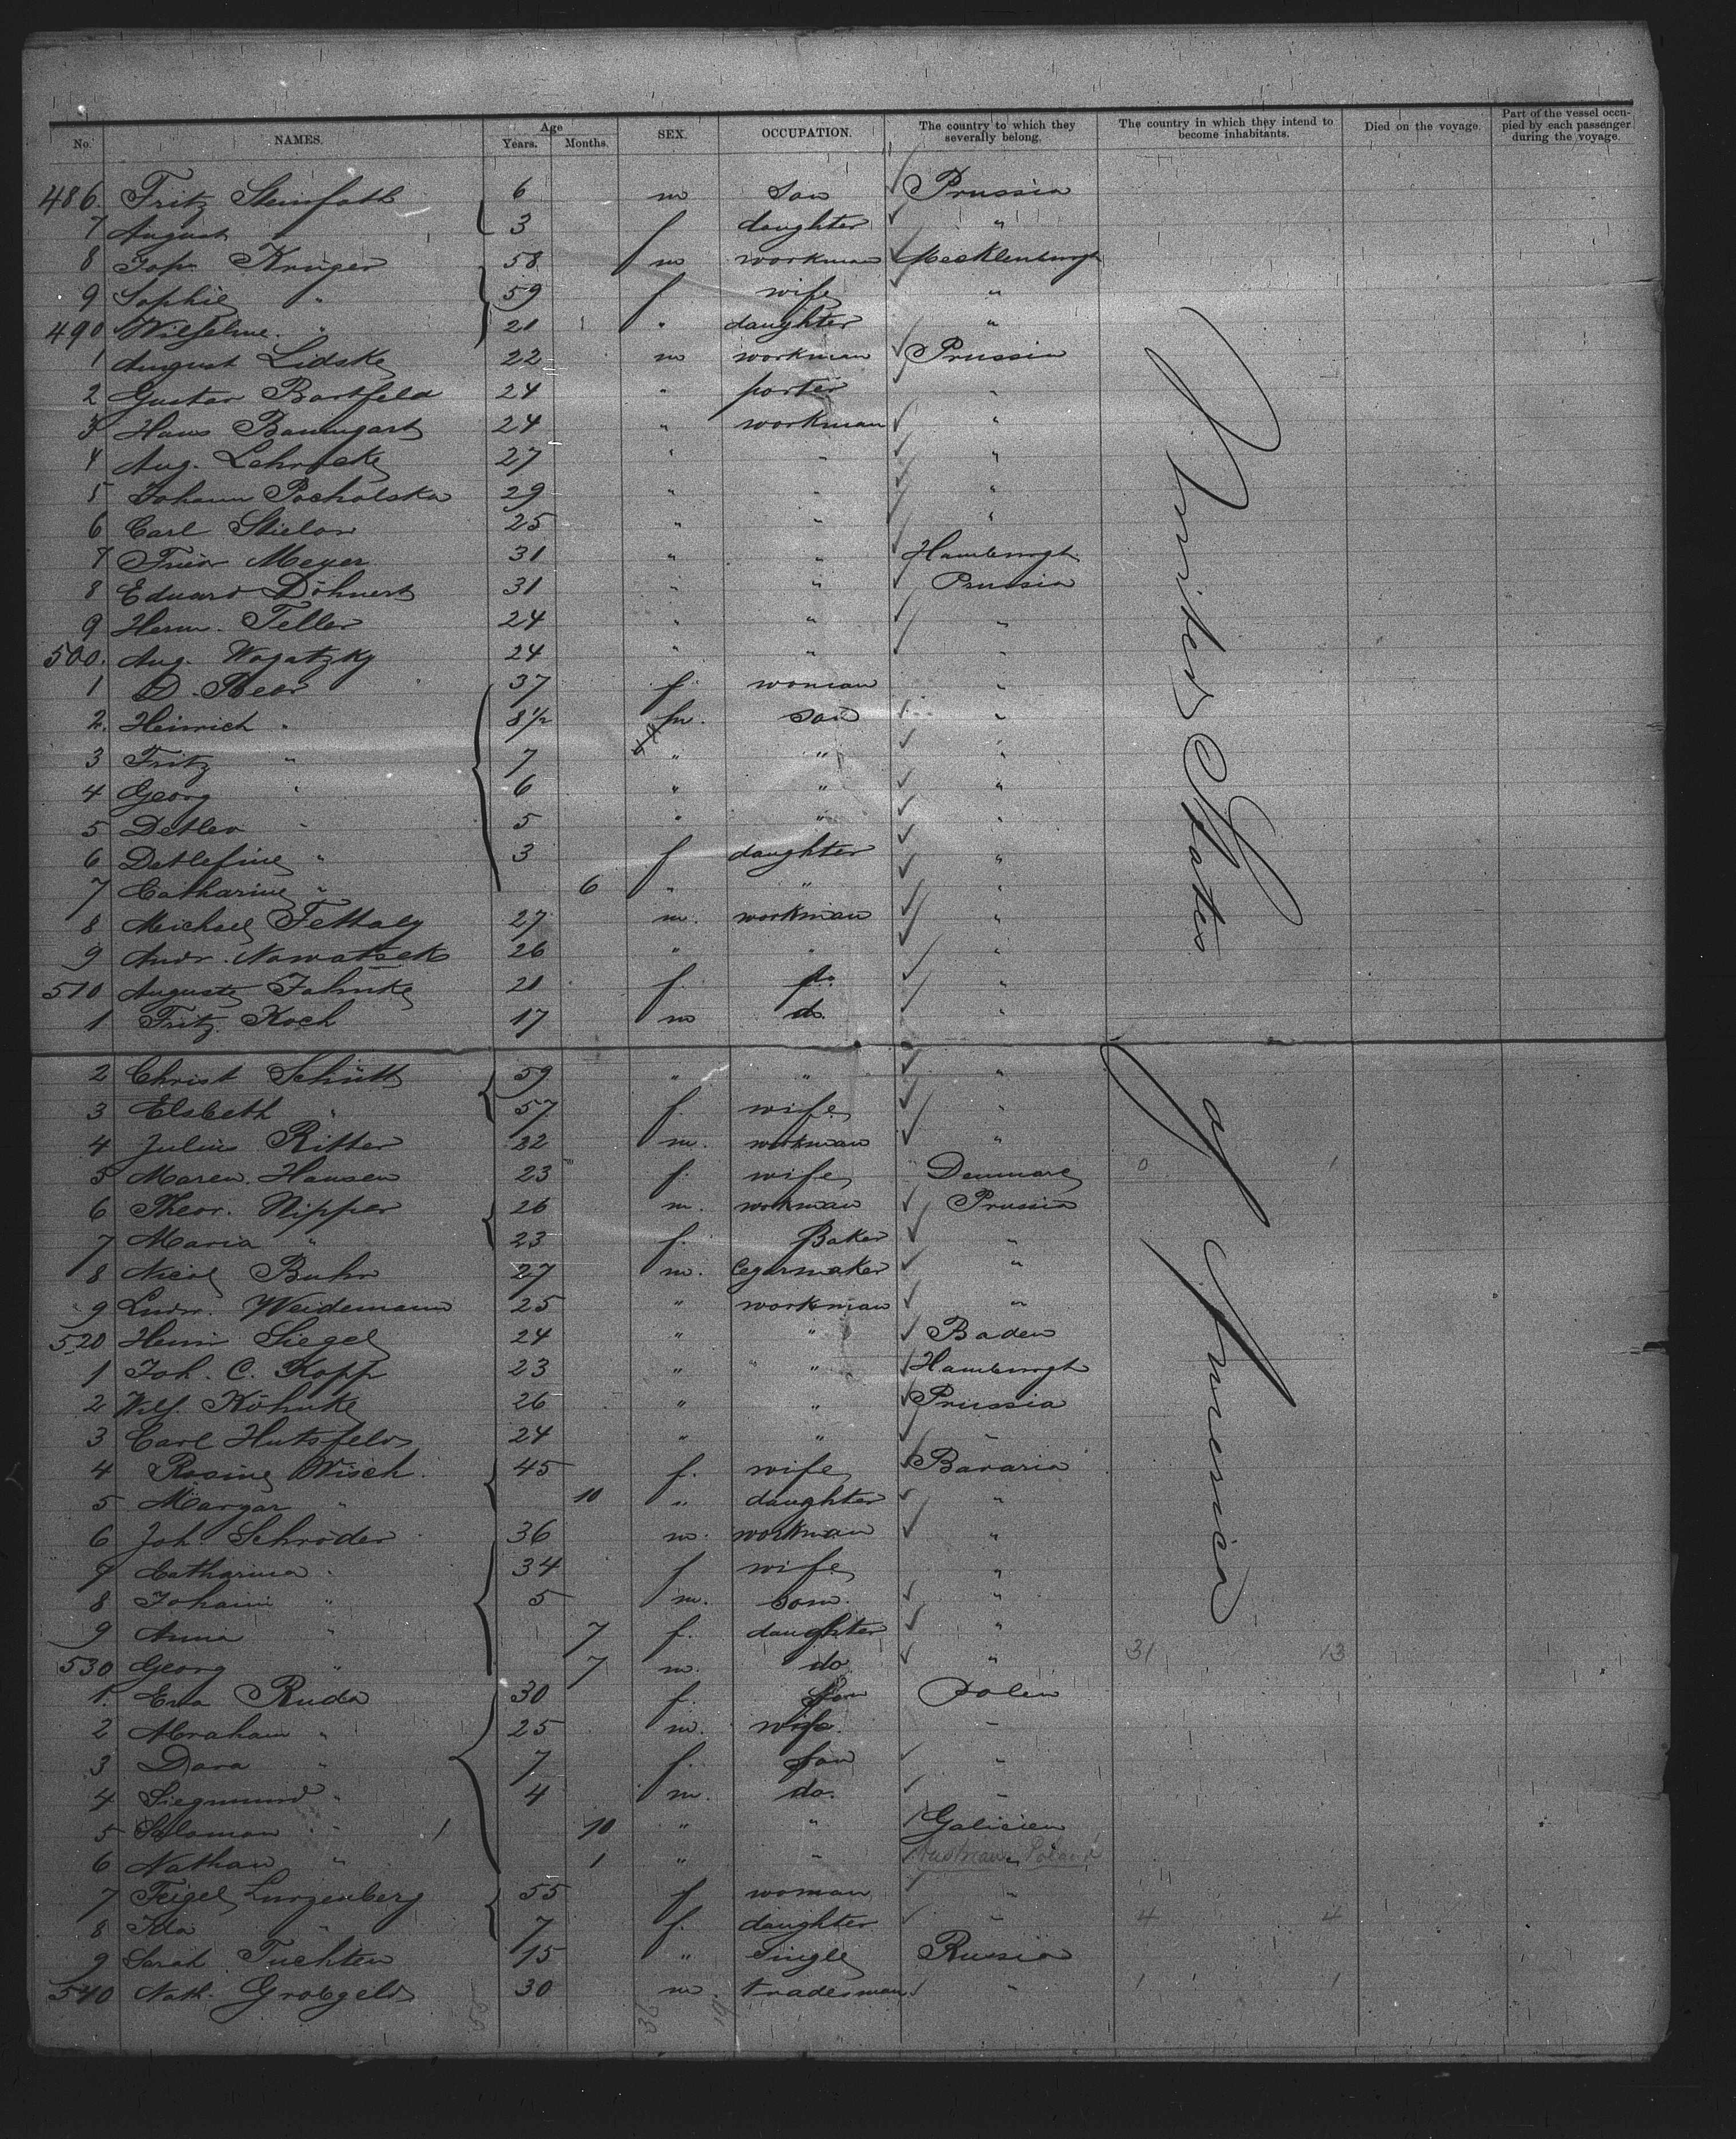 No. NAMES. Age Years. Months. SEX. OCCUPATION. The country to which they severally belong. The country in which they intend to become inhabitants. Died on the voyage. Part of the vessel occupied by each passenger during the voyage.
United States of America
486. Fritz Steinfath 6 m Son Prussia
7 August " 3 f daughter "
8 Joh. Krüger 58 m workman Mecklenburgh
9 Sophie " 59 f wife "
490 Wilhelmine " 21 " daughter "
1 August Lidske 22 m workman Prussia
2 Gustav Bartfeld 24 " porter "
3 Hans Baumgart 24 " workman "
4 Aug. 27 " " "
5 Johann Pocholska 29 " " "
6 Carl Stielow 25 " " "
7 Meyer 31 " " Hamburgh
8 Eduard Döhnert 31 " " Prussia
9 Herm. Teller 24 " " "
500. Aug. Wogatzky 24 " " "
1 D. Beer 37 f. woman "
2. Heinrich " 8½ m. son "
3 Fritz " 7 " " "
4 Georg " 6 " " "
5 Detlev " 5 " " "
6 Detlefine " 3 f daughter "
7 Catharine " 6 " " "
8 Michael 27 m. workman "
9 Andr. Nowatsek 26 " " "
510 Auguste Jahnke 21 f do. "
1 Fritz Koch 17 m do. "
2 Christ Schütt 59 " " "
3 Elsbeth " 57 f. wife "
4 Julius Ritter 22 m. workman "
5 Maren Hansen 23 f. wife Denmark 0 1
6 Theor. Nipper 26 m. workman Prussia
7 Maria " 23 f. Baker "
8 Nicol Buhr 27 m. Cegarmaker "
9 Ludw. Weidemann 25 " workman "
520 Henri Siegel 24 " " Baden
1 Joh. C. Kopp 23 " " Hamburgh
2 Wilh. Köhnke 26 " " Prussia
3 Carl Hutsfeld 24 " " "
4 Rosine Wisch 45 f. wife Bavaria
5 Margar " 10 " daughter "
6 Joh. Schröder 36 m. workman "
7 Catharina " 34 f wife "
8 Johann " 5 m. son "
9 Anna " 7 f. daughter "
530 Georg " 7 m. do " 31 13
1. Eva Ruda 30 f. Polen
2 Abraham " 25 m. wife "
3 Dora " 7 f. son "
4 Siegmund " 4 m. do. "
5 Salomon " 10 " " Galicien
6 Nathan " 1 " " Austrian Poland
7 Feigel Lunzenberg 55 f woman "
8 Ida " 7 f. daughter " 4 4
9 Sarah Tuchten 15 " Single Russia
540 Nath. Grobgeld 30 m. tradesman " 1 1